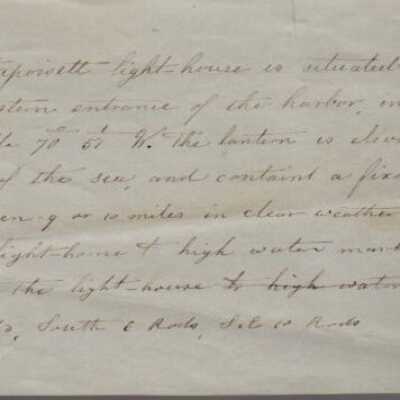 apoisett light-house is situated
stern entrance of the harbor, in
de 70° 51' W. the lantern is elev
of the sea, and containt a fixe
en 9 or 10 miles in clear weather
light-house & high water mark
the light-house to high water
South 6 Rods, S.E. 10 Rods